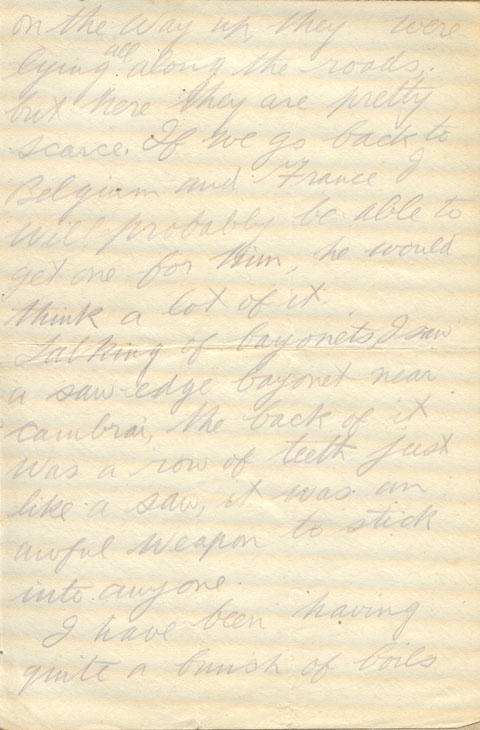 on the way up, they were
lying all along the roads,
but here they are pretty
scarce. If we go back to
Belgium and France I
will probably be able to
get one for him, he would
think a lot of it.
Talking of bayonets, I saw
a saw-edge bayonet near
Cambrai, the back of it
was a row of teeth just
like a saw, it was an
awful weapon to stick
into anyone.
I have been having
quite a bunch of boils